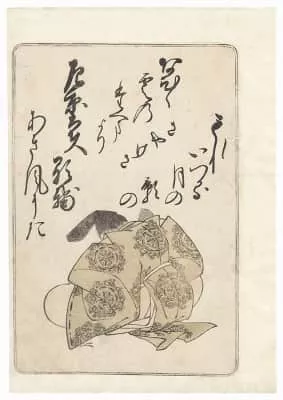 左京大夫顕輔
あき風に
たなひく
雲の
たえまより
もれ
いつる
月の
影の
さやけさ